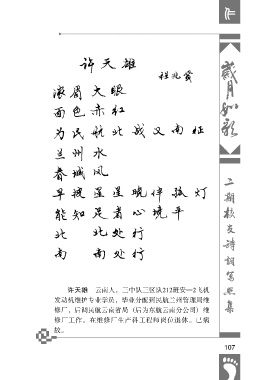 许天雄
程兆发
浓眉大眼
面色赤红
为民航北战又南征
兰州水
春城风
早理星星晓伴孤灯
能知足者心境平
北 北处行
南 南处行
许天雄 云南人。三中队三区队212班安—2飞机
发动机维护专业学员，毕业分配到民航兰州管理局维
修厂，后调民航云南省局（后为东航云南分公司）维
修厂工作。在维修厂生产科工程师岗位退休。已病
故。
岁月如歌
二期校友诗词写照集
107